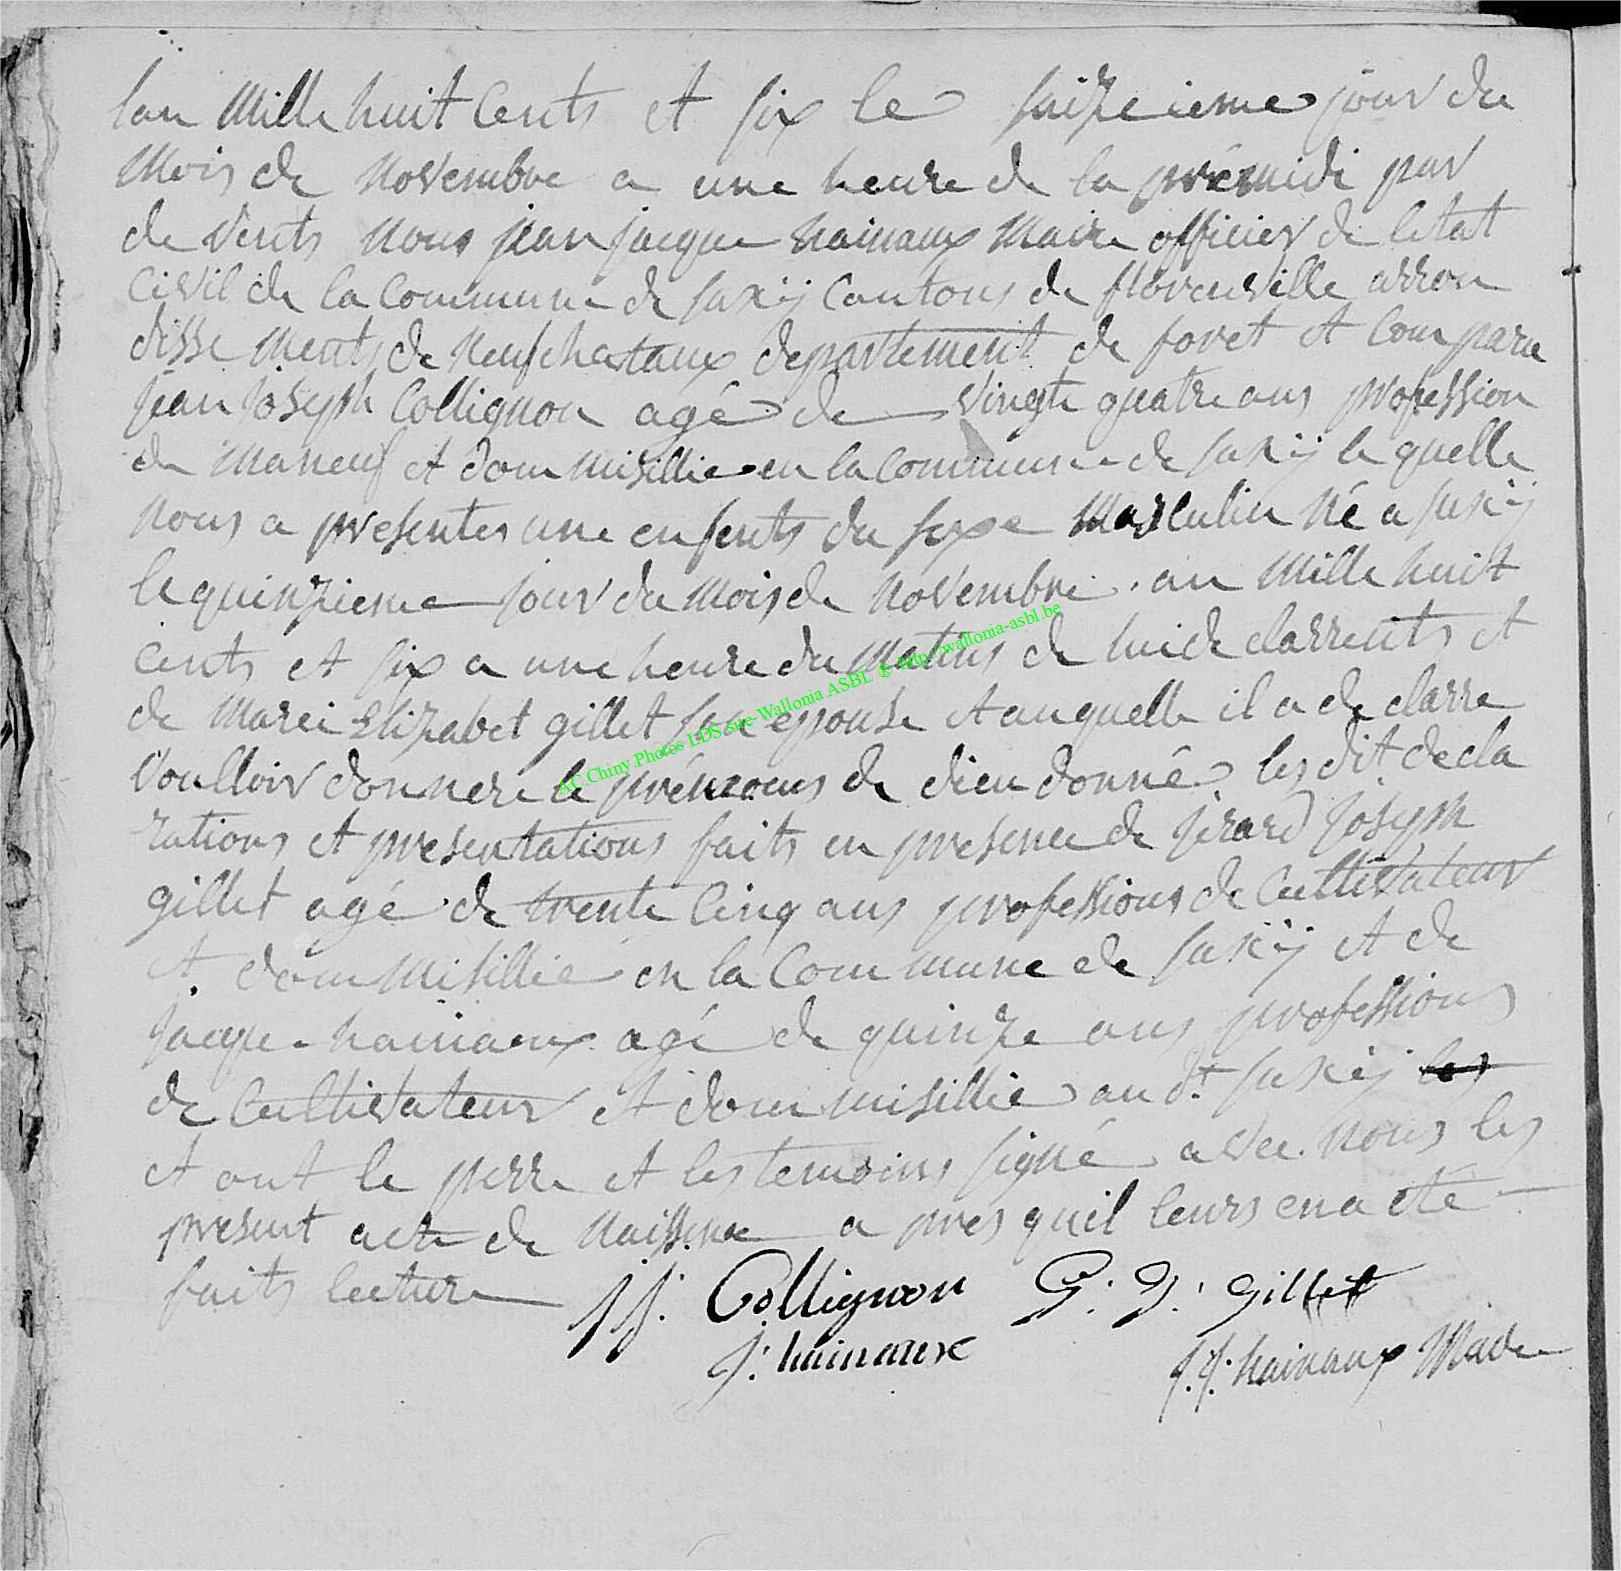 lan Mille huit Cents et six le saizieieme jour du
Mois de Novembre a une heure de la prémidi par
de vents Nous jean jacque hainaux Maire officier de letat
Civil de la Commune de Jaxÿ Cantons de florenville arron
disse ments de Neufchataux departement de foret et Compare
jean joseph Collignon agé de vingte quatre ans profession
de Maneuf et dommisillie en la Commune de Jaxÿ le quelle
Nous a presentes une enfents du sexe Masculin Né a Jaxÿ
le quinzieme jour du Mois de Novembre an Mille huit
Cents et six a une heure du Matins de luide clarrents et
de Marei Elizabet gillet sa epouse et auquelle il a de clarre
Voulloir donnere le prénoms de dieu donné les dit decla
rations et presentations faits en presence de jerard joseph
gillet agé de trente Cinq ans professions de Cultivateur
et dommisillié en la Commune de Jaxÿ et de
jacque hainaux agé de quinze ans professions
de Cultivateur et dommisillie au dt Jaxÿ les
et ont le perre et les temoins signé avec Nous les
present acte de Naissence a pres quil leurs en a été
faits lecture
j j. Collignon G: J: gillet
J: hainaux
j. j. hainaux Maire
AC Chiny Photos LDS sur Wallonia ASBL © http://wallonia-asbl.be